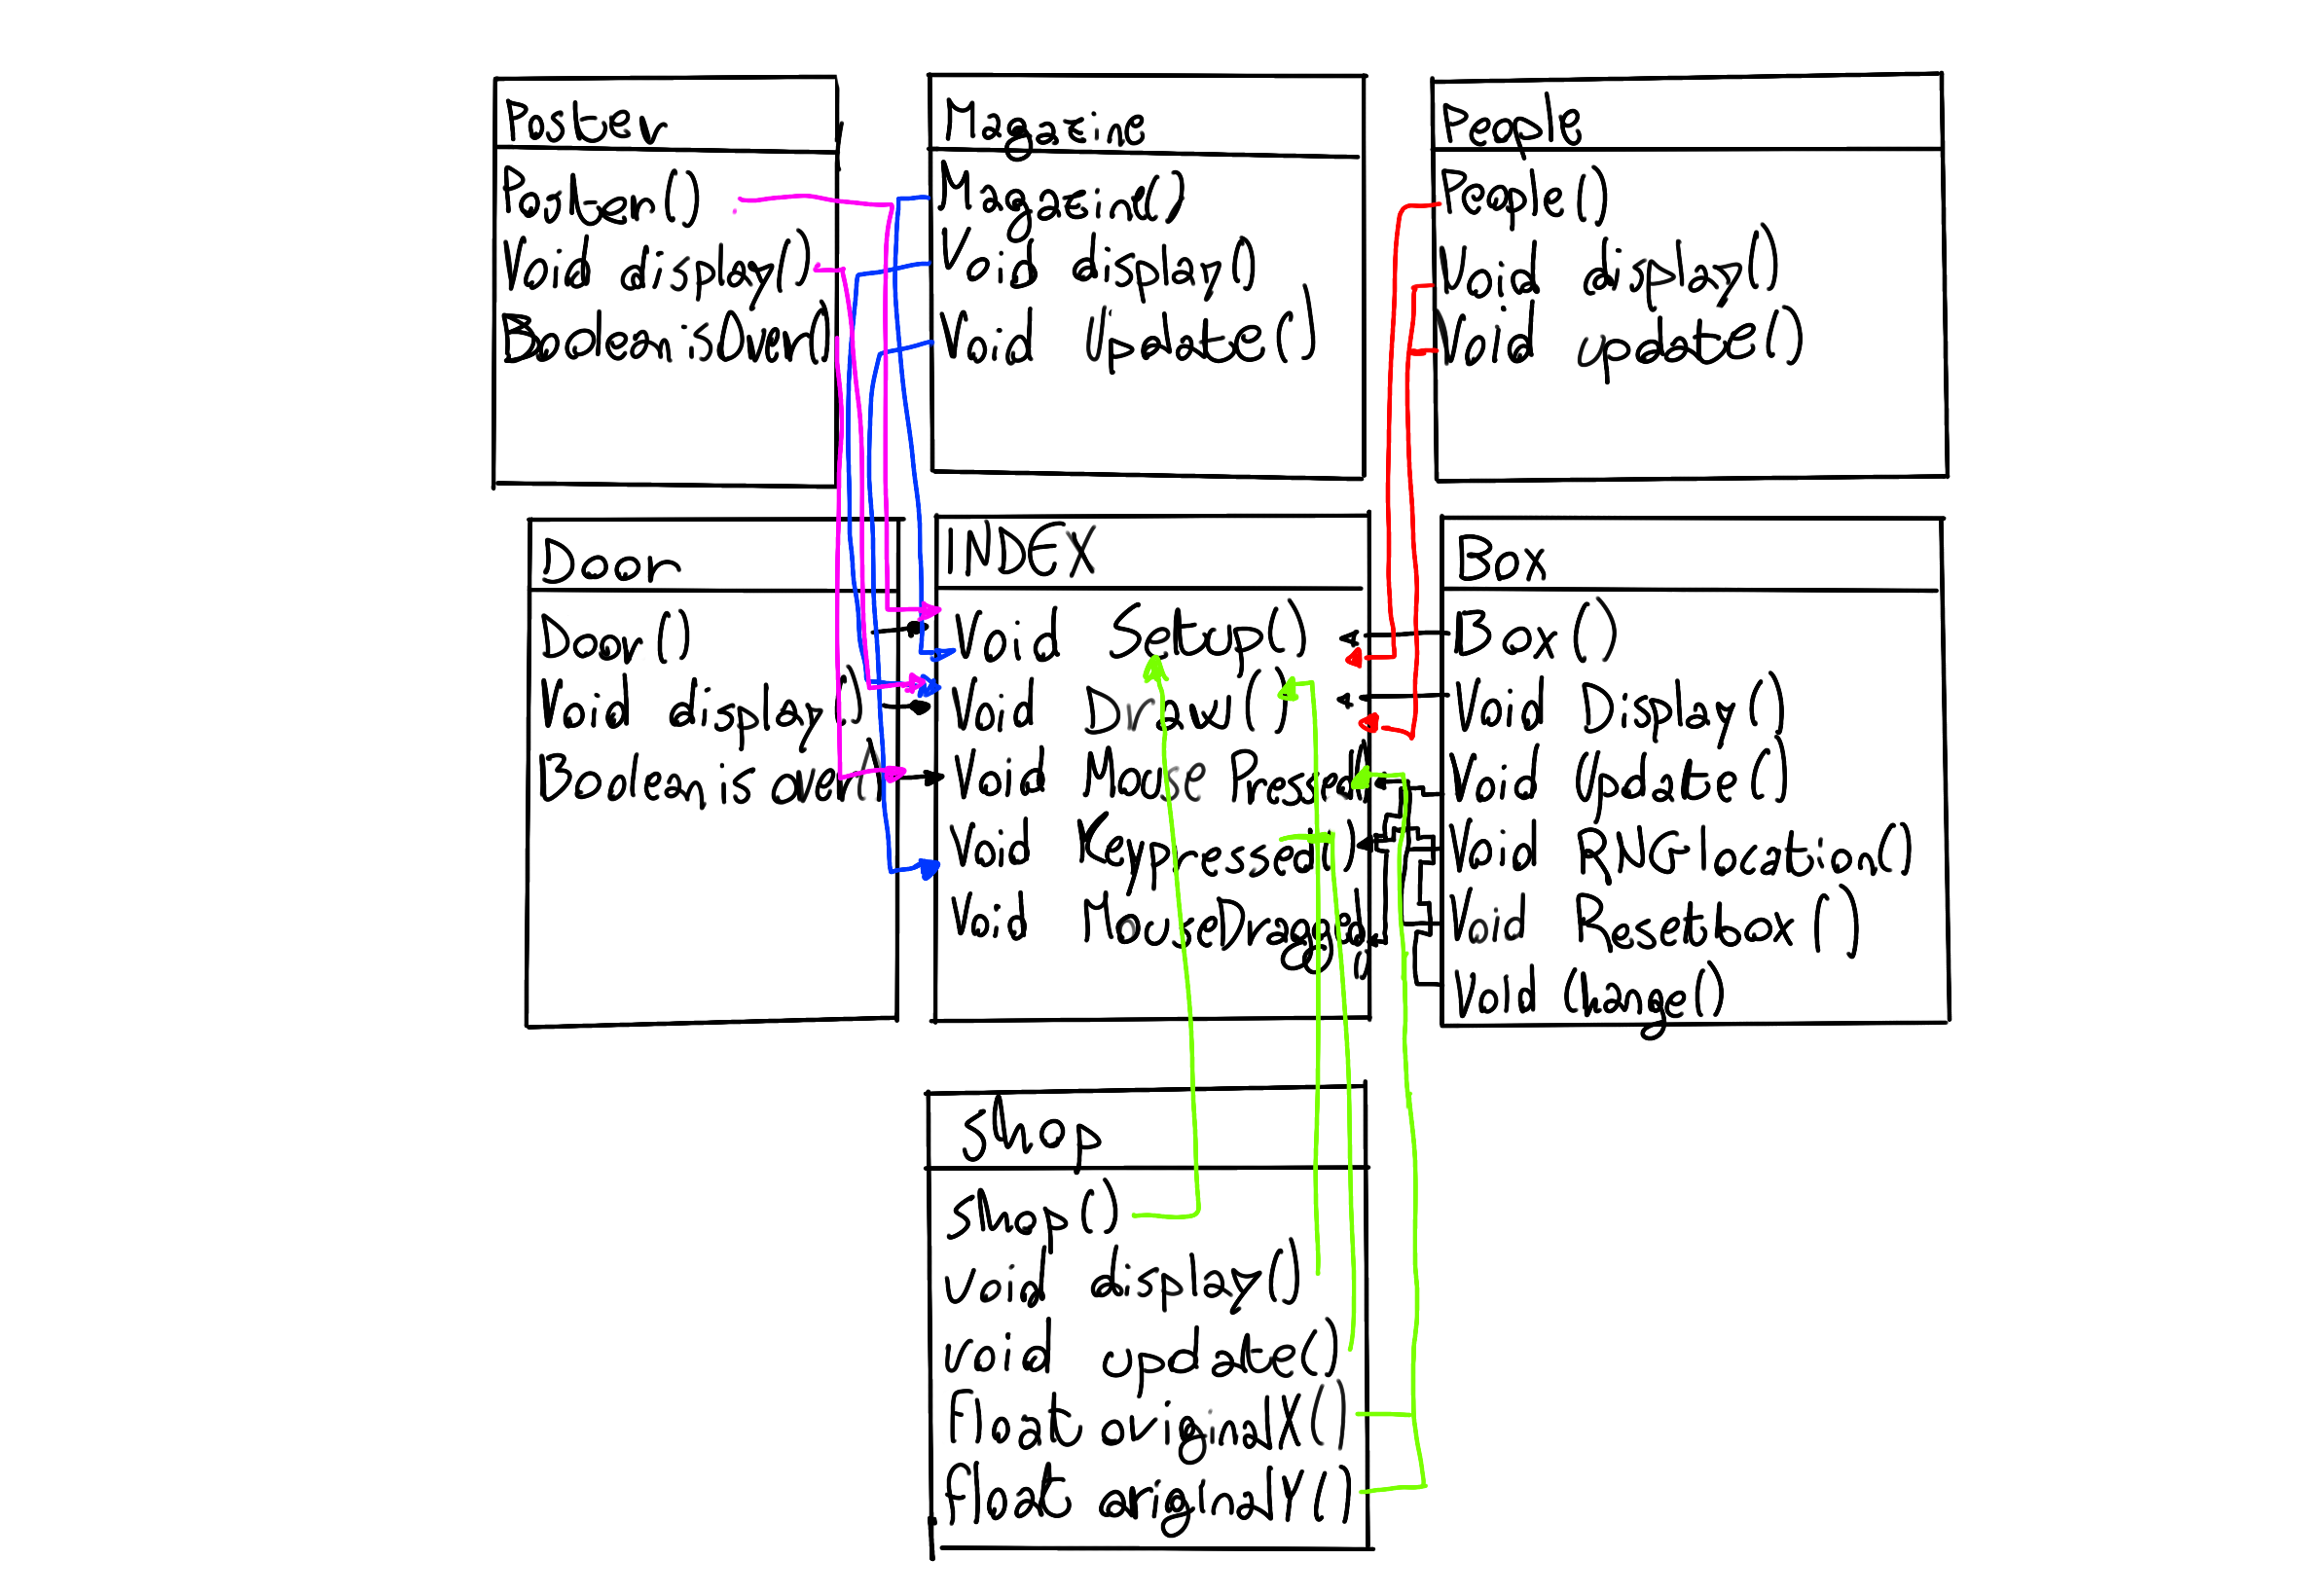 Poster
Poster()
Void display()
Boolean isOver()
Magazine
Magazine()
Void display()
Void Update()
People
People()
Void display()
Void update()
Door
Door()
Void display()
Boolean is over()
INDEX
Void Setup()
Void Draw()
Void Mouse Pressed()
Void Keypressed()
Void MouseDragged
()
Box
Box()
Void Display()
Void Update()
Void RNGlocation()
Void Resetbox()
Void Change()
Shop
Shop()
void display()
void update()
float originalX()
float originalY()